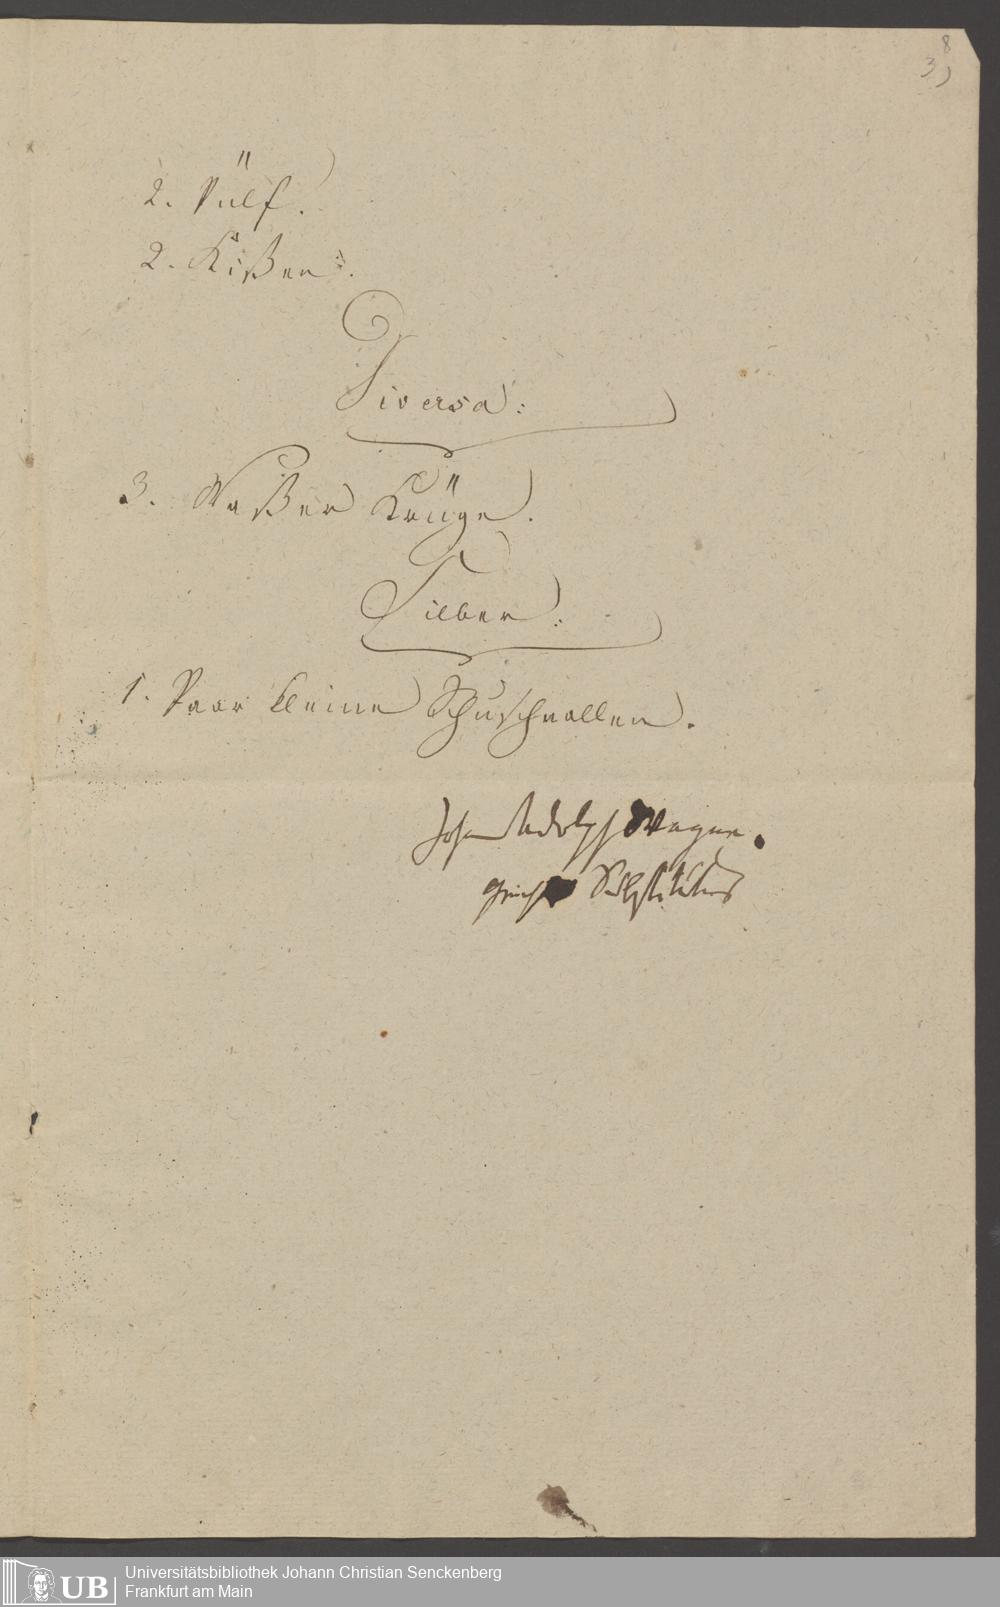 8
3)
2. Pülf.
2. Kißen.
Diversa:
3. Waßer Krüge.
Silber:
1. Paar kleine Schuschnallen.
Johann Adolph Wagner.
Substitutus
UB Universitätsbibliothek Johann Christian Senckenberg
Frankfurt am Main